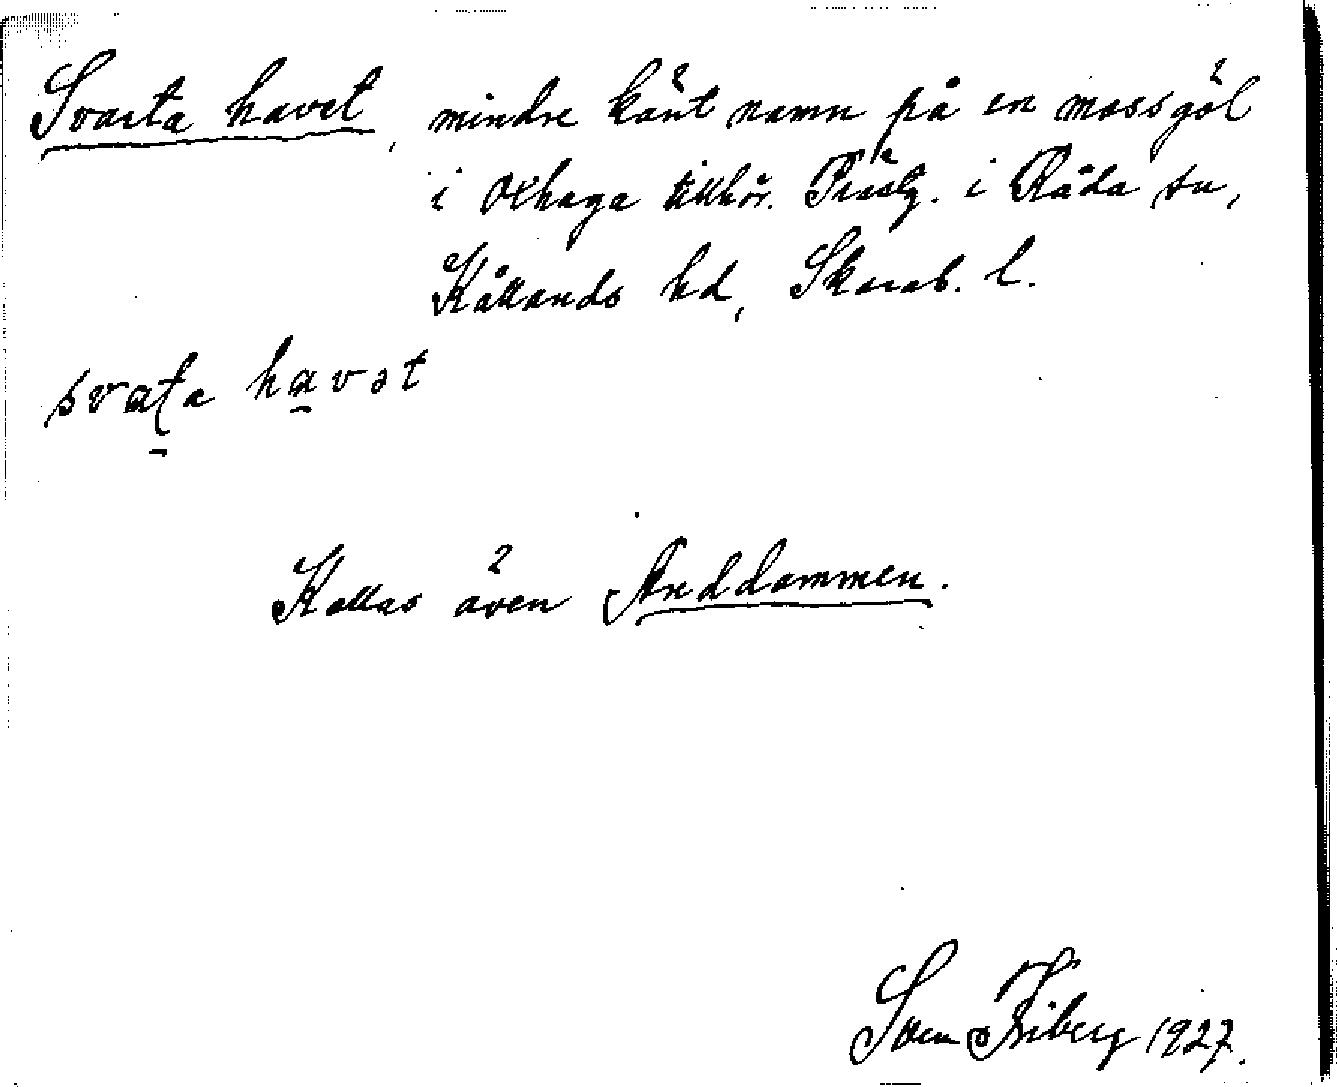 Svarta havet, mindre känt namn på en mossgöl
i Oxhaga tillhör. Prästg. i Råda sn,
Kållands hd, Skarab. l.
svaʈa havət
Kallas även Anddammen.
Sven Friberg 1927.